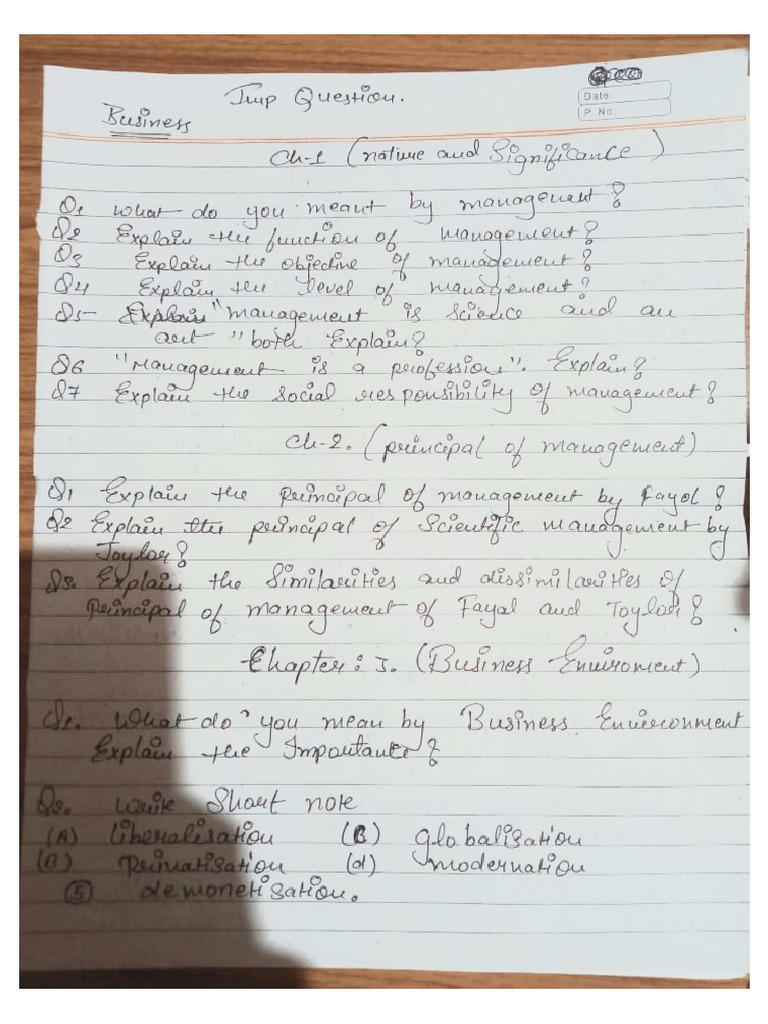 Imp Question.
Date:
P. No:
Business
Ch-1 (nature and Significance)
Q1 what do you meant by management?
Q2 Explain the function of management?
Q3 Explain the objective of management?
Q4 Explain the level of management?
Q5- Explain "management is science and an
art" both Explain?
Q6 "Management is a profession". Explain?
Q7 Explain the social responsibility of management?
Ch-2. (principal of management)
Q1 Explain the principal of management by Fayol?
Q2 Explain the principal of Scientific management by
Toylor?
Q3. Explain the Similarities and dissimilarities of
Principal of management of Fayal and Toylor?
Chapter: 3. (Business Enviroment)
Q1. What do you mean by Business Environment
Explain the Importance?
Q2. write Short note
(A) liberalisation (B) globalisation
privatisation (d) modernation
(5) demonetisation.